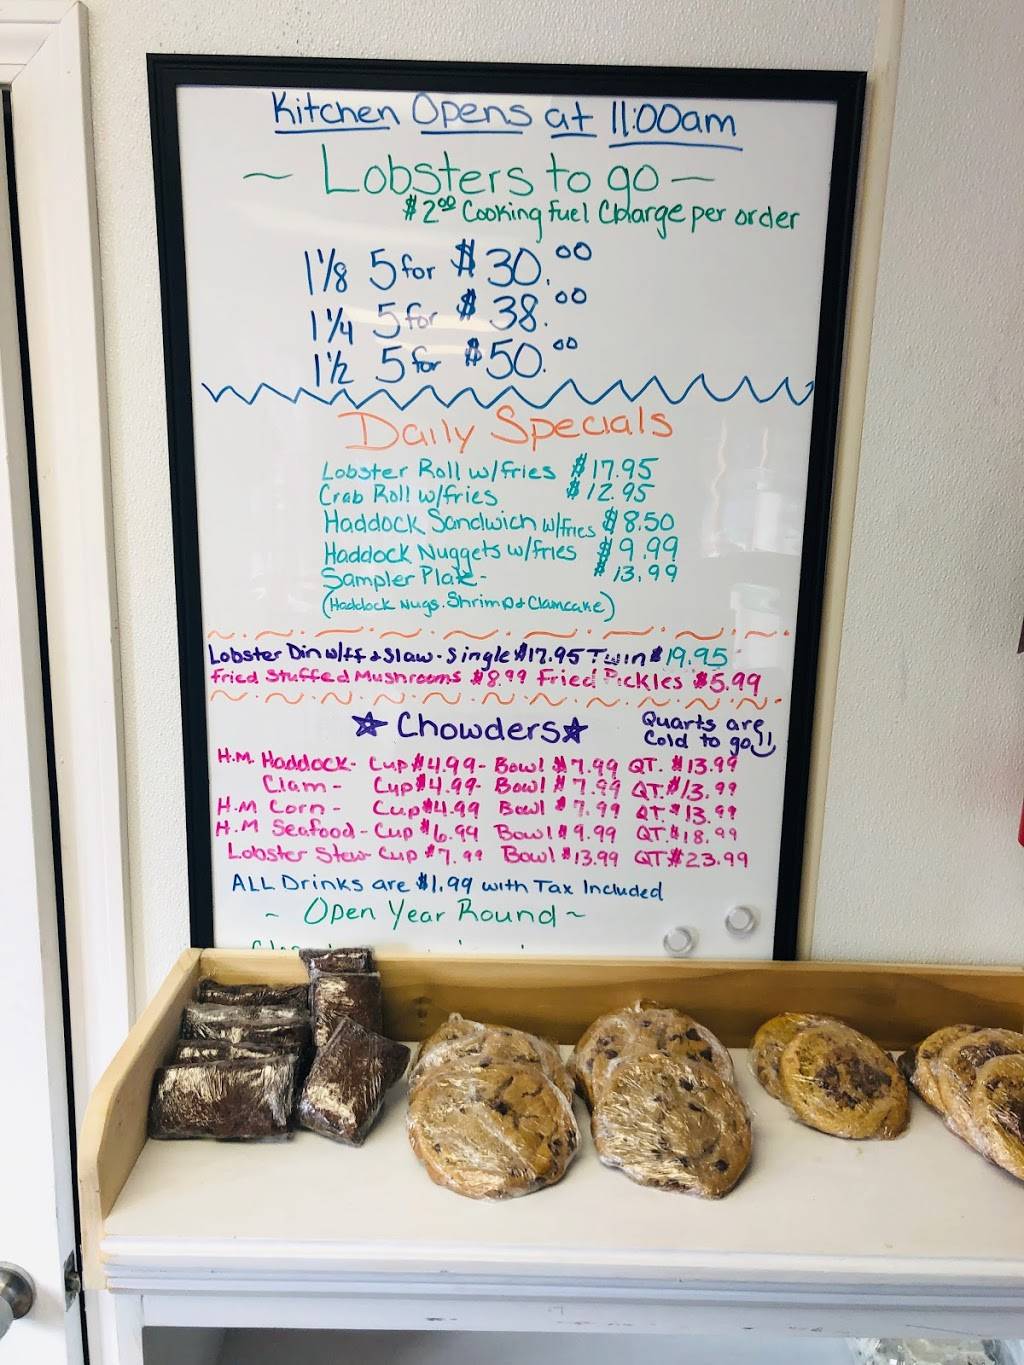 Kitchen Opens at 11:00am
~ Lobsters to go ~
$2.00 Cooking Fuel Charge per order
1 1/8 5 for $30.00
1 1/4 5 for $38.00
1 1/2 5 for $50.00
Daily Specials
Lobster Roll w/fries $17.95
Crab Roll w/fries $12.95
Haddock Sandwich w/fries $8.50
Haddock Nuggets w/fries $9.99
Sampler Plate - $13.99
(Haddock Nugs. Shrimp & Clamcake)
Lobster Din w/ff & Slaw - Single $17.95 Twin $19.95
Fried Stuffed Mushrooms $8.99 Fried Pickles $5.99
☆ Chowders ☆
Quarts are
Cold to go!!
H.M. Haddock - Cup $4.99 - Bowl $7.99 QT. $13.99
Clam - Cup $4.99 - Bowl $7.99 QT. $13.99
H.M Corn - Cup $4.99 Bowl $7.99 QT $13.99
H.M Seafood - Cup $6.99 Bowl $9.99 QT $18.99
Lobster Stew - Cup $7.99 Bowl $13.99 QT $23.99
ALL Drinks are $1.99 with Tax Included
~ Open Year Round ~